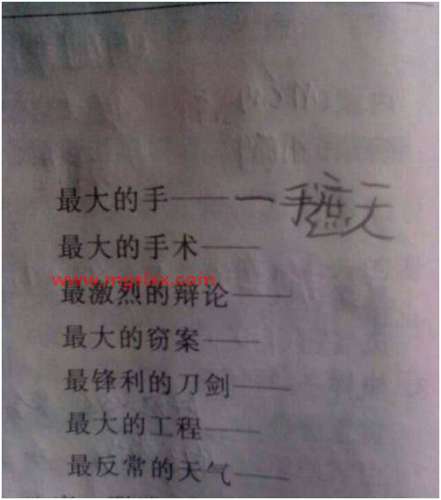 最大的手——一手遮天
最大的手术——
www.
最激烈的辩论——
最大的窃案——
最锋利的刀剑——
最大的工程——
最反常的天气——